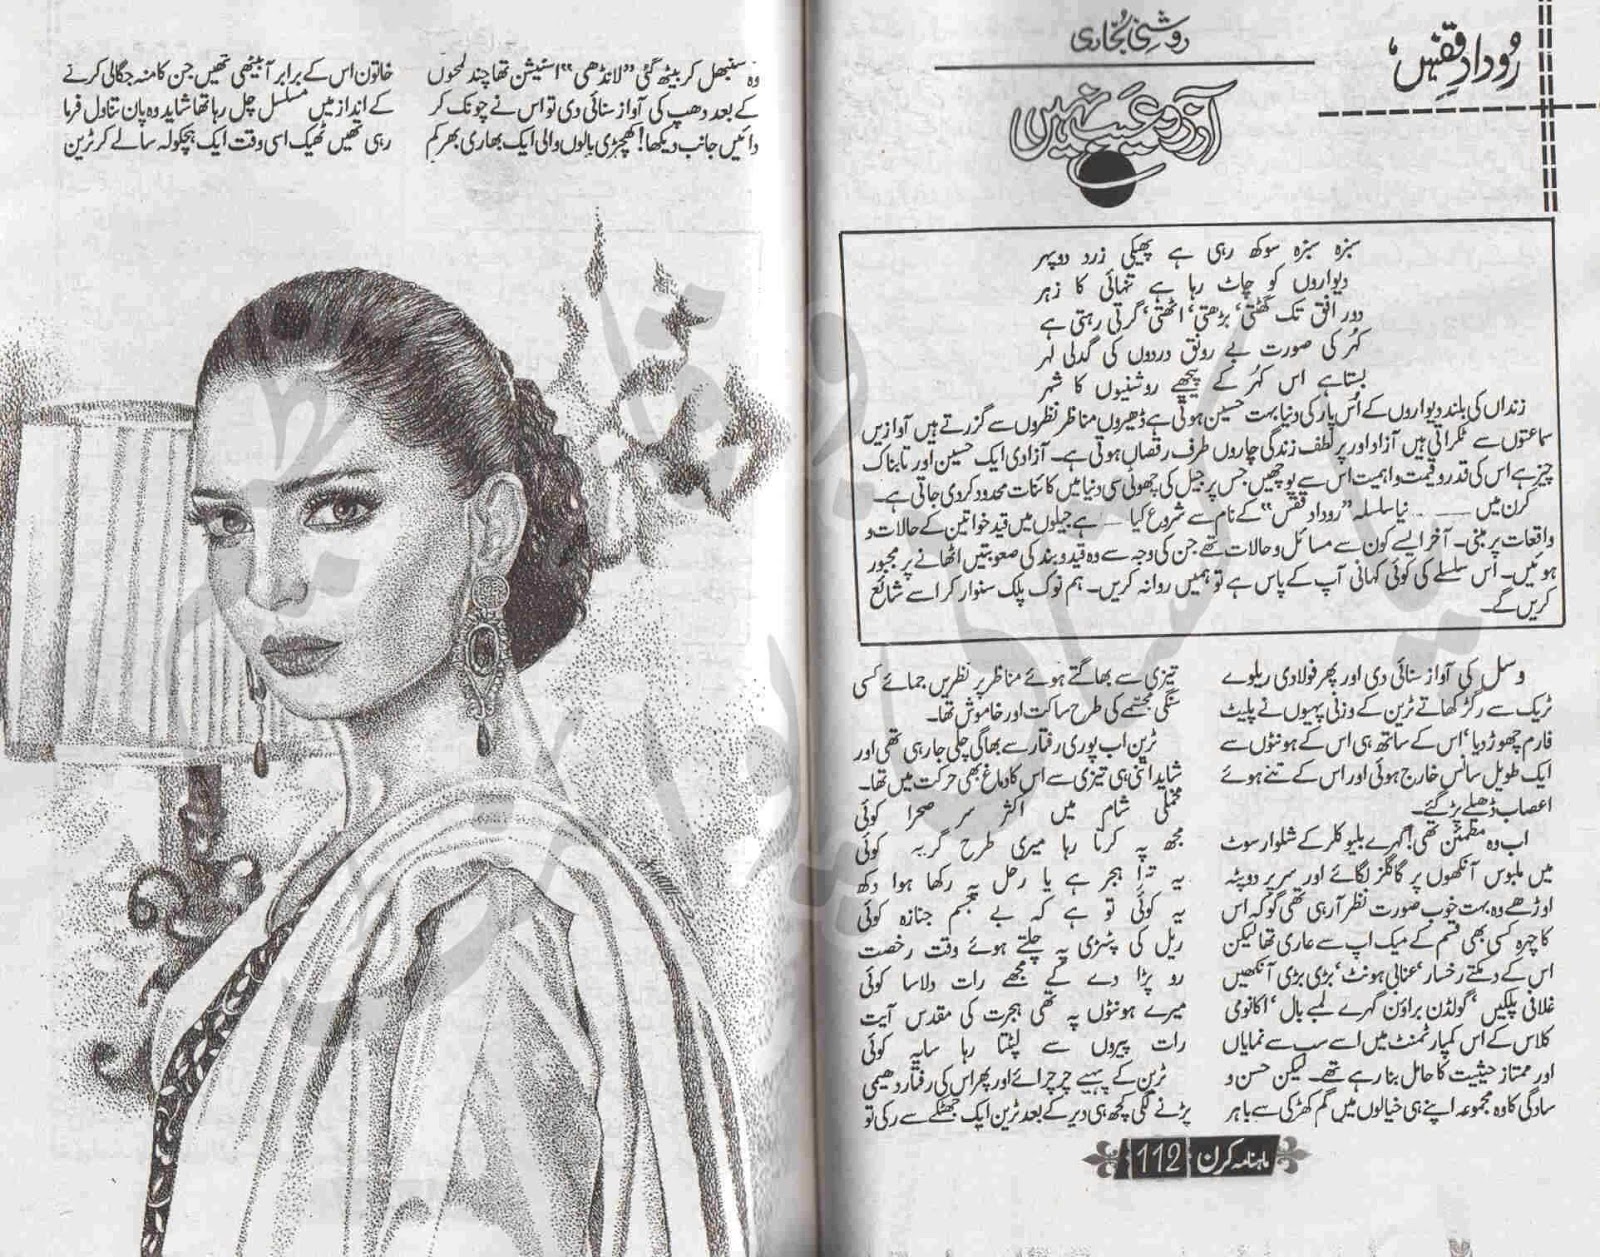 رُودادِ قفس
روشنی بخاری
آرزو عیب نہیں
سبزہ سبزہ سوکھ رہی ہے پھیکی زرد دوپہر
دیواروں کو چاٹ رہا ہے تنہائی کا زہر
دور افق تک گھٹتی، بڑھتی، اٹھتی، گرتی رہتی ہے
کہر کی صورت بے رونق دردوں کی گدلی لہر
بستا ہے اس کہر کے پیچھے روشنیوں کا شہر
زنداں کی بلند دیواروں کے اُس پار کی دنیا بہت حسین ہوتی ہے ڈھیروں مناظر نظروں سے گزرتے ہیں آوازیں
سماعتوں سے ٹکراتی ہیں آزاد اور پر لطف زندگی چاروں طرف رقصاں ہوتی ہے۔ آزادی ایک حسین اور تابناک
چیز ہے اس کی قدر و قیمت و اہمیت اس سے پوچھیں جس پر جیل کی چھوٹی سی دنیا میں کائنات محدود کردی جاتی ہے۔
کرن میں ــــ نیا سلسلہ "روداد قفس" کے نام سے شروع کیا ــــ ہے جیلوں میں قید خواتین کے حالات و
واقعات پر مبنی۔ آخر ایسے کون سے مسائل و حالات تھے جن کی وجہ سے وہ قید و بند کی صعوبتیں اٹھانے پر مجبور
ہوئیں۔ اس سلسلے کی کوئی کہانی آپ کے پاس ہے تو ہمیں روانہ کریں۔ ہم نوک پلک سنوار کر اسے شائع
کریں گے۔
وسل کی آواز سنائی دی اور پھر فولادی ریلوے
ٹریک سے رگڑ کھاتے ٹرین کے وزنی پہیوں نے پلیٹ
فارم چھوڑ دیا، اس کے ساتھ ہی اس کے ہونٹوں سے
ایک طویل سانس خارج ہوئی اور اس کے تنے ہوئے
اعصاب ڈھیلے پڑ گئے۔
اب وہ مطمئن تھی! گہرے بلیو کلر کے شلوار سوٹ
میں ملبوس آنکھوں پر گاگلز لگائے اور سر پر دوپٹہ
اوڑھے وہ بہت خوب صورت نظر آرہی تھی گو کہ اس
کا چہرہ کسی بھی قسم کے میک اپ سے عاری تھا لیکن
اس کے دمکتے رخسار، عنابی ہونٹ، بڑی بڑی آنکھیں
غلافی پلکیں، گولڈن براؤن گہرے لمبے بال، اکانومی
کلاس کے اس کمپارٹمنٹ میں اسے سب سے نمایاں
اور ممتاز حیثیت کا حامل بنا رہے تھے۔ لیکن حسن و
سادگی کا وہ مجموعہ اپنے ہی خیالوں میں گم کھڑکی سے باہر
تیزی سے بھاگتے ہوئے مناظر پر نظریں جمائے کسی
سنگی مجسمے کی طرح ساکت اور خاموش تھا۔
ٹرین اب پوری رفتار سے بھاگی چلی جارہی تھی اور
شاید اتنی ہی تیزی سے اس کا دماغ بھی حرکت میں تھا۔
مخملی شام میں اکثر سر صحرا کوئی
مجھ پہ کرتا رہا میری طرح گریہ کوئی
یہ ترا ہجر ہے یا رحل پہ رکھا ہوا دکھ
یہ کوئی تو ہے کہ بے جسم جنازہ کوئی
ریل کی پٹڑی پہ چلتے ہوئے وقت رخصت
رو پڑا دے کے مجھے رات دلاسا کوئی
میرے ہونٹوں پہ تھی ہجرت کی مقدس آیت
رات پیروں سے لپٹتا رہا سایہ کوئی
ٹرین کے پہیے چرچرائے اور پھر اس کی رفتار دھیمی
پڑنے لگی کچھ ہی دیر کے بعد ٹرین ایک جھٹکے سے رکی تو
ماہنامہ کرن 112
وہ سنبھل کر بیٹھ گئی "لانڈھی" اسٹیشن تھا چند لمحوں
کے بعد دھپ کی آواز سنائی دی تو اس نے چونک کر
دائیں جانب دیکھا! کھچڑی بالوں والی ایک بھاری بھر کم
خاتون اس کے برابر آ بیٹھی تھیں جن کا منہ جگالی کرنے
کے انداز میں مسلسل چل رہا تھا شاید وہ پان تناول فرما
رہی تھیں ٹھیک اسی وقت ایک ہچکولہ سا لے کر ٹرین